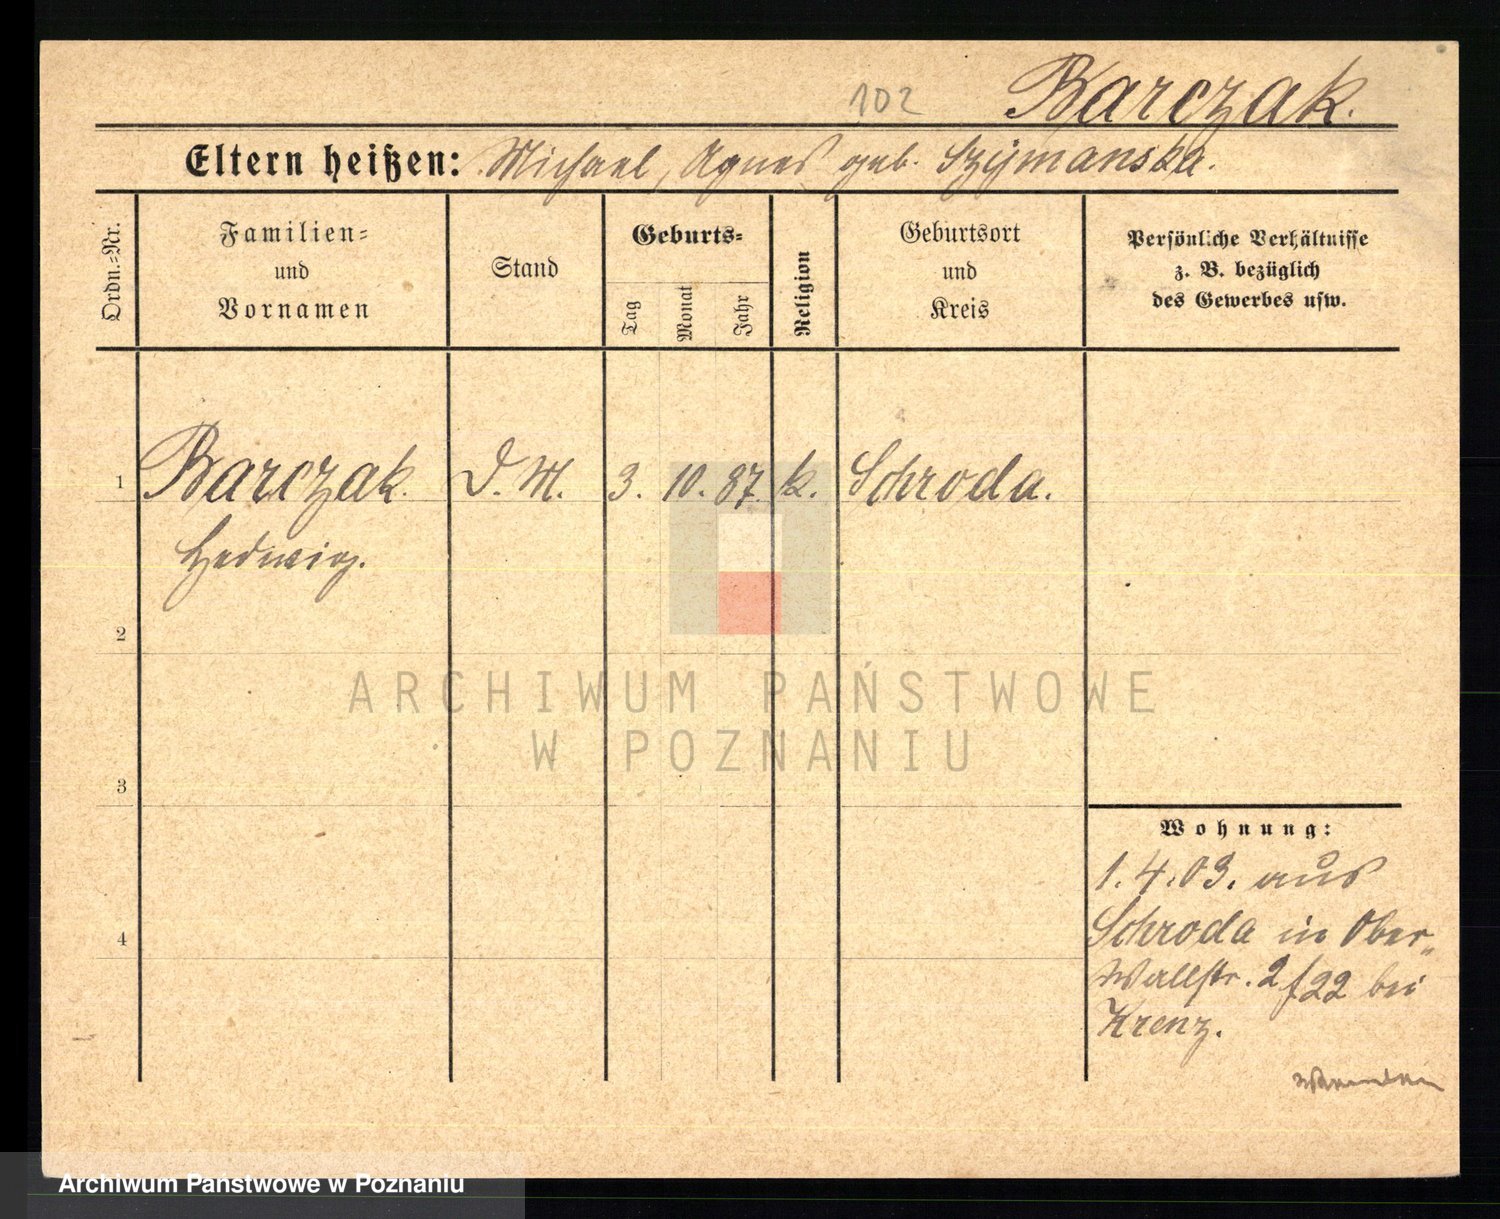 102 Barczak.
Eltern heißen: Michael, Agnes geb. Szymanska.
Ordn.-Nr.
Familien-
und
Vornamen
Stand
Geburts-
Tag
Monat
Jahr
Religion
Geburtsort
und
Kreis
Persönliche Verhältnisse
z. B. bezüglich
des Gewerbes usw.
1 Barczak. D. M. 3. 10. 87. k. Schroda.
Hedwig.
2
3
4
ARCHIWUM PAŃSTWOWE
W POZNANIU
Wohnung:
1.4.03. aus
Schroda in Ober-
Wallstr. 2 f 22 bei
Krenz.
Archiwum Państwowe w Poznaniu